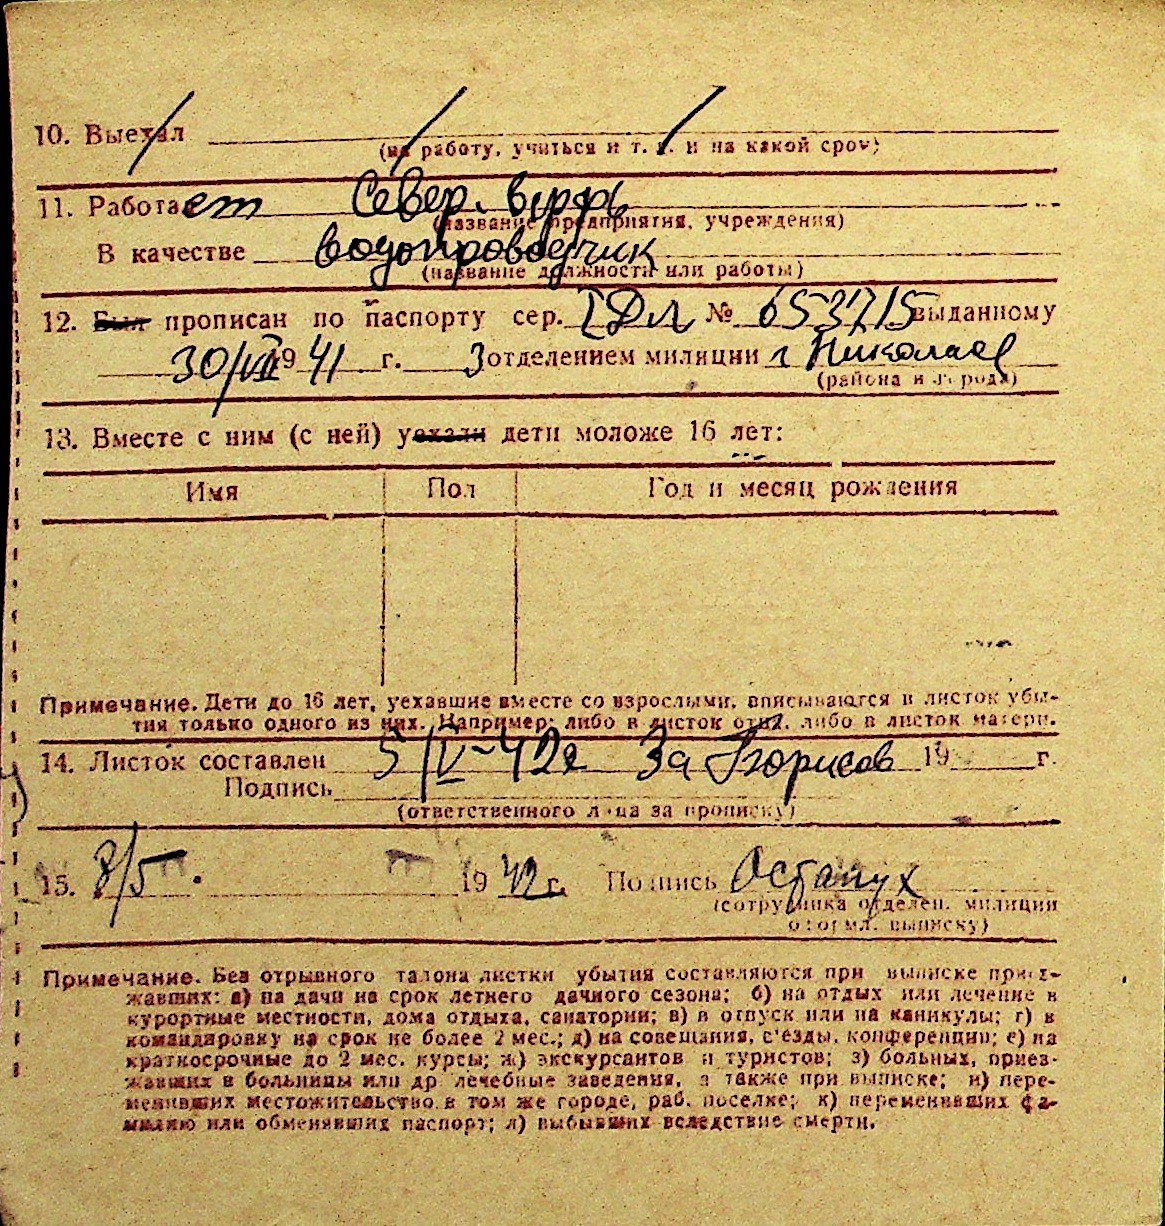 10. Выехал
(на работу, учиться и т. п. и на какой срок)
11. Работает Север. верфь
(название предприятия, учреждения)
В качестве водопроводчик
(название должности или работы)
12. Был прописан по паспорту сер. I ДЛ № 653715 выданному
30/VII 1941 г. 3 отделением милиции г Николаев
(района и города)
13. Вместе с ним (с ней) уехали дети моложе 16 лет:
Имя Пол Год и месяц рождения
Примечание. Дети до 16 лет, уехавшие вместе со взрослыми, вписываются в листок убы-
тия только одного из них. Например: либо в листок отца, либо в листок матери.
14. Листок составлен 5/V-42г За 19 г.
Подпись
(ответственного лица за прописку)
15. 8/5. 1942 г. Подпись Остапух
(сотрудника отделен. милиции
оформл. выписку)
Примечание. Без отрывного талона листки убытия составляются при выписке приез-
жавших: а) на дачи на срок летнего дачного сезона; б) на отдых или лечение в
курортные местности, дома отдыха, санатории; в) в отпуск или на каникулы; г) в
командировку на срок не более 2 мес.; д) на совещания, с'езды, конференции; е) на
краткосрочные до 2 мес. курсы; ж) экскурсантов и туристов; з) больных, приез-
жавших в больницы или др лечебные заведения, а также при выписке; и) пере-
менивших местожительство в том же городе, раб. поселке; к) переменивших фа-
милию или обменявших паспорт; л) выбывших вследствие смерти.